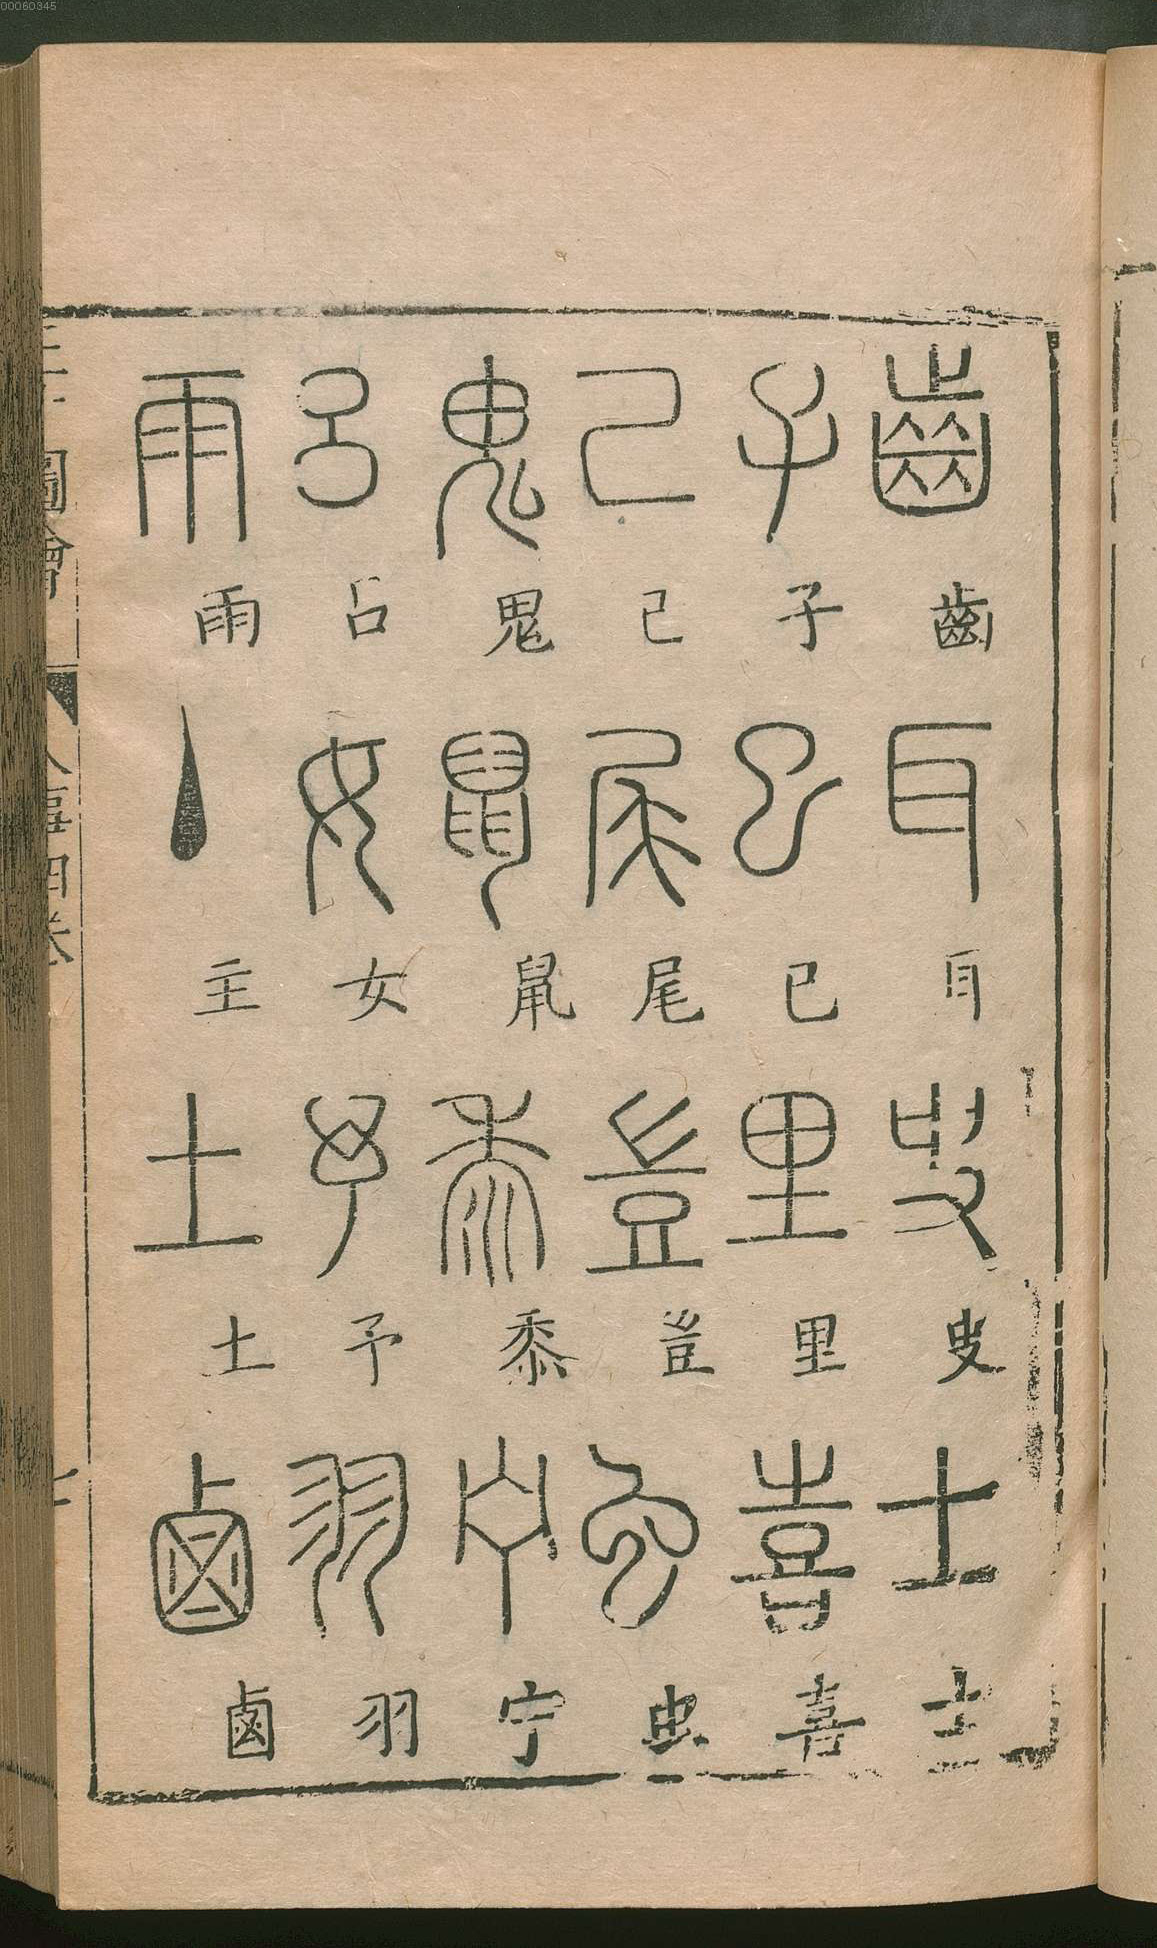 00060345
齒 齒 耳 耳 史 史 士 士
子 子 巳 巳 里 里 喜 喜
己 己 尾 尾 豈 豈 虫 虫
鬼 鬼 鼠 鼠 黍 黍 宁 宁
呂 呂 女 女 予 予 羽 羽
雨 雨 主 主 土 土 鹵 鹵
三才圖會 人事四卷